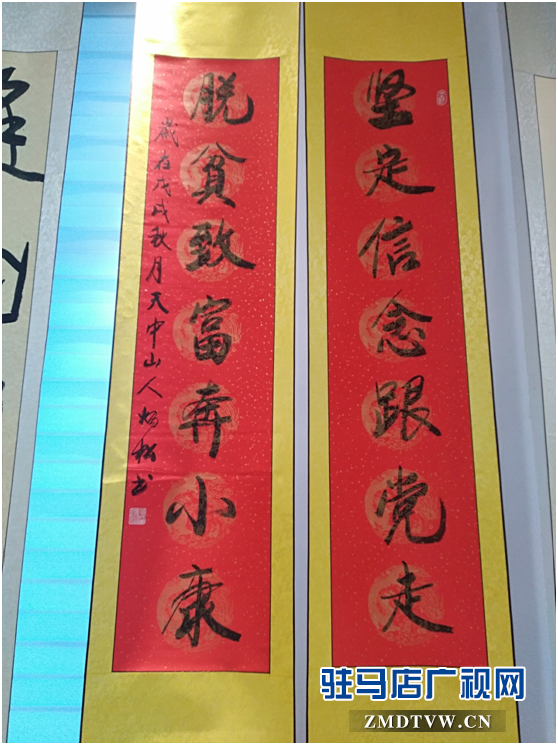 坚定信念跟党走
脱贫致富奔小康
歲在戊戌秋月天中山人杨松书
驻马店广视网
ZMDTVW.CN